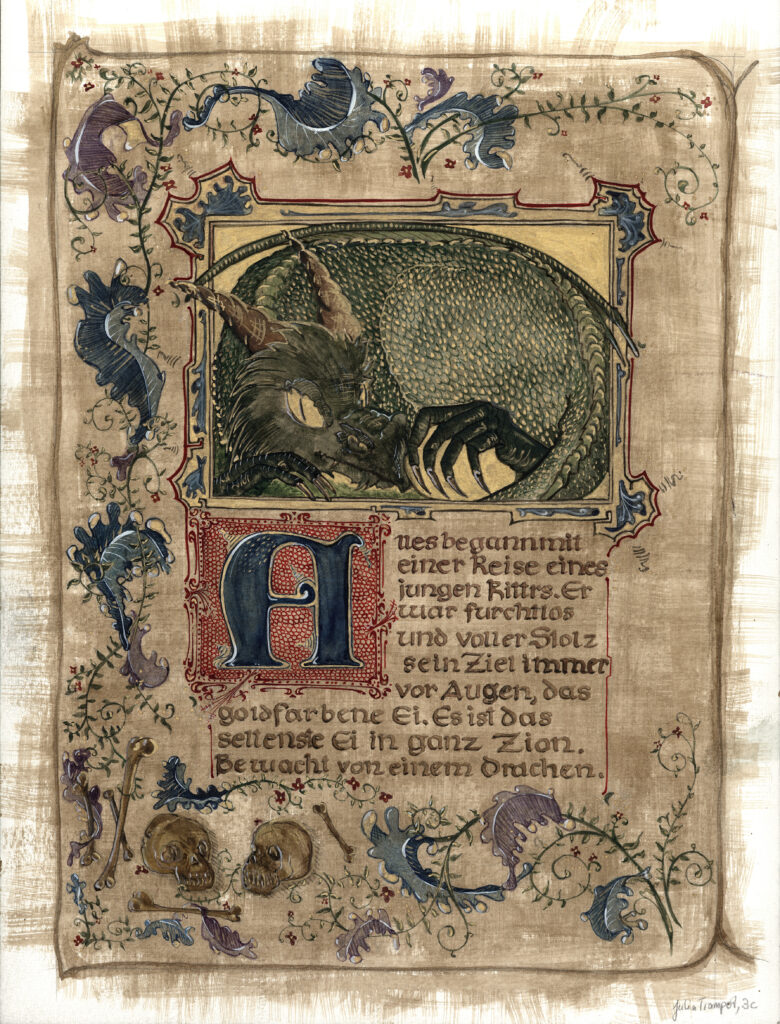 Alles begann mit
einer Reise eines
jungen Rittrs. Er
war furchtlos
und voller Stolz
sein Ziel immer
vor Augen, das
goldfarbene Ei. Es ist das
seltenste Ei in ganz Zion.
Bewacht von einem Drachen.
Julia 3c